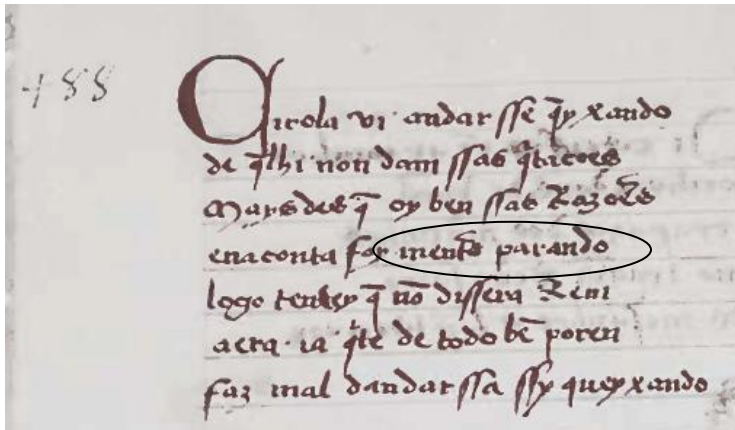 488
Citola vi andar sse q̄yxando
de q̄lhi non dam ssas q̄tacoēs
Mays des q̄ oy ben ssas Razoēs
enaconta foy mentes parando
logo tenhey q̄ nō dissera Ren
aera ia q̄te de todo bē poren
faz mal dandar ssa ssy queyxando